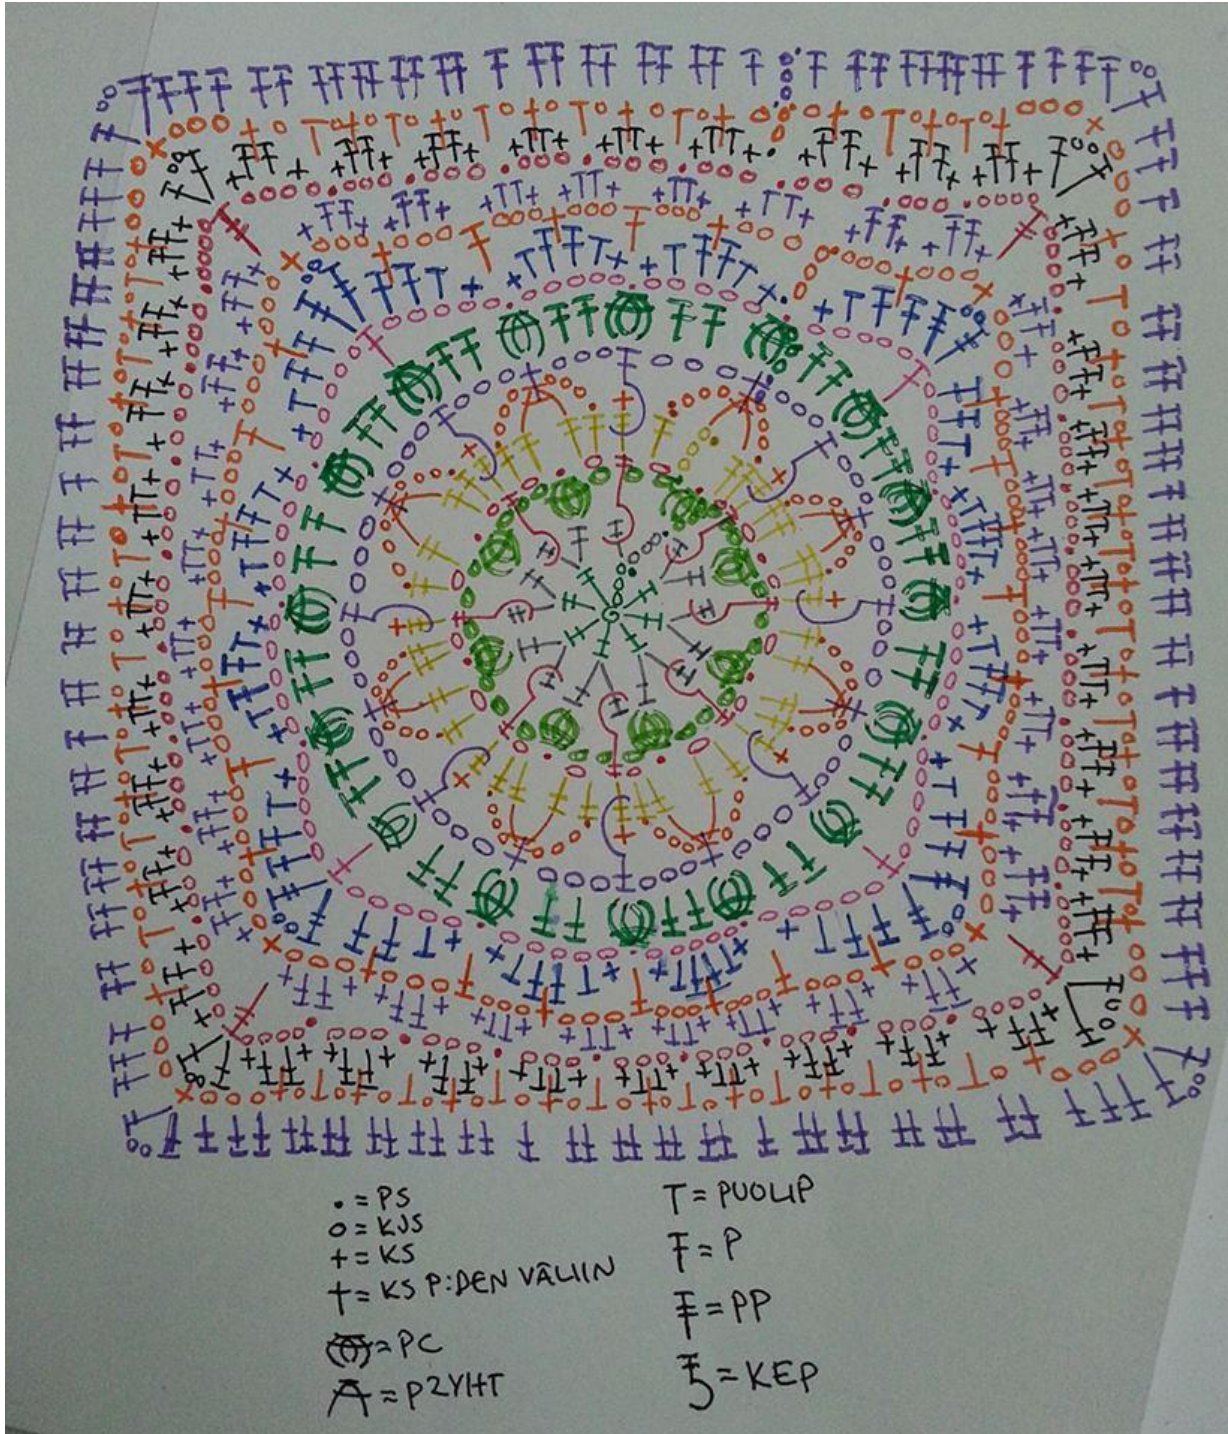 • = PS
o = KJS
+ = KS
† = KS P:DEN VÄLIIN
= PC
= P2YHT
T = PUOLIP
= P
= PP
= KEP